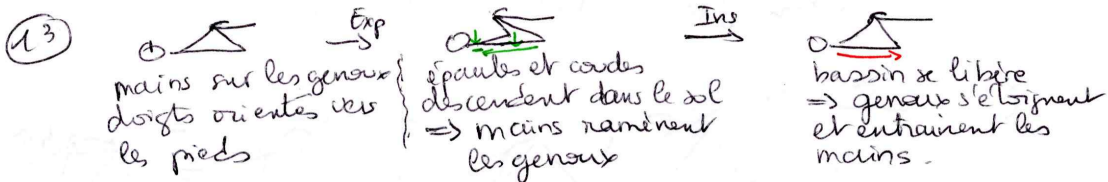 13
Exp
Ins
mains sur les genoux
doigts orientés vers
les pieds
épaules et coudes
descendent dans le sol
=> mains ramènent
les genoux
bassin se libère
=> genoux s'éloignent
et entrainent les
mains.